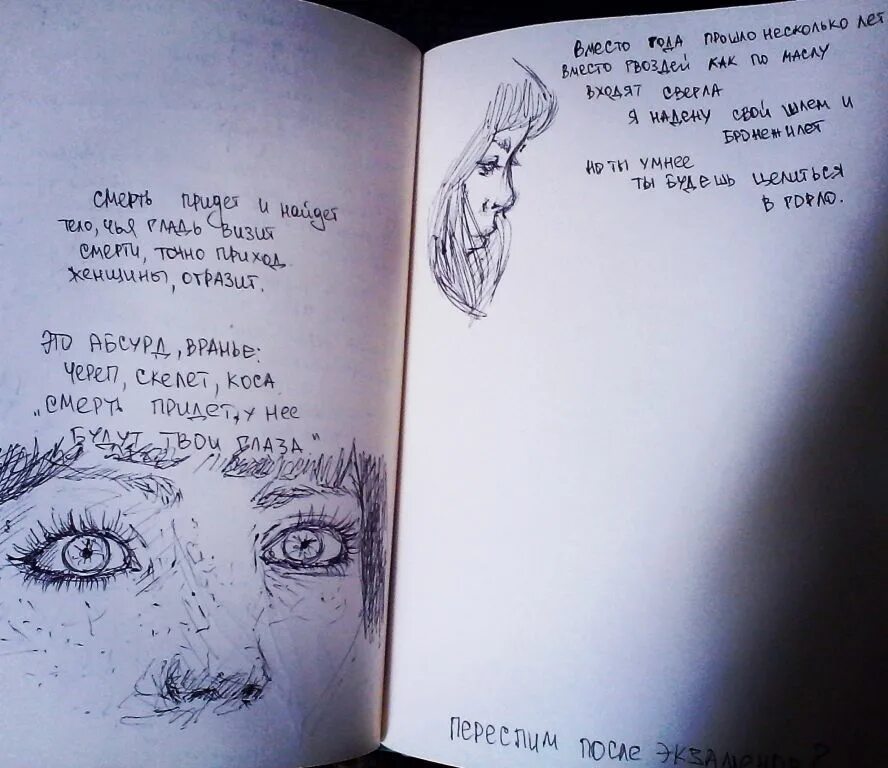 смерть придет и найдет
тело, чья гладь визит
смерти, точно приход
женщины, отразит.
это абсурд, вранье:
череп, скелет, коса.
„смерть придет, у нее
будут твои глаза"
вместо года прошло несколько лет
вместо гвоздей как по маслу
входят сверла
я надену свой шлем и
бронежилет
но ты умнее
ты будешь целиться
в горло.
переспим после экзаменов?